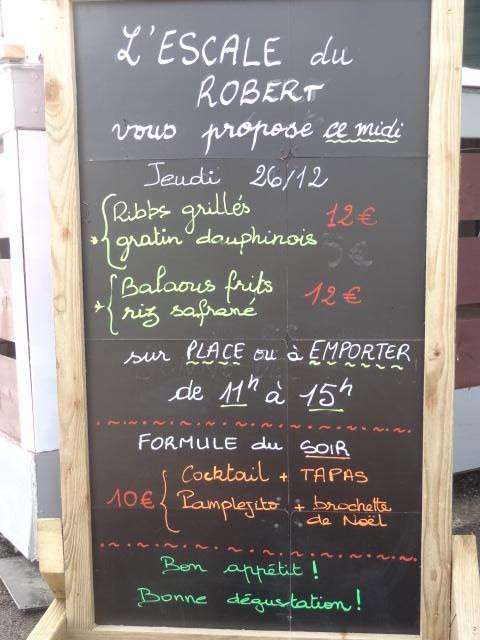 L'ESCALE du
ROBERT
vous propose ce midi
Jeudi 26/12
Ribbs grillés 12€
gratin dauphinois
Balaous frits
riz safrané 12€
sur PLACE ou à EMPORTER
de 11h à 15h
FORMULE du SOIR
Cocktail + TAPAS
10€ Pamplejito + brochette
de Noël
Bon appétit !
Bonne dégustation !